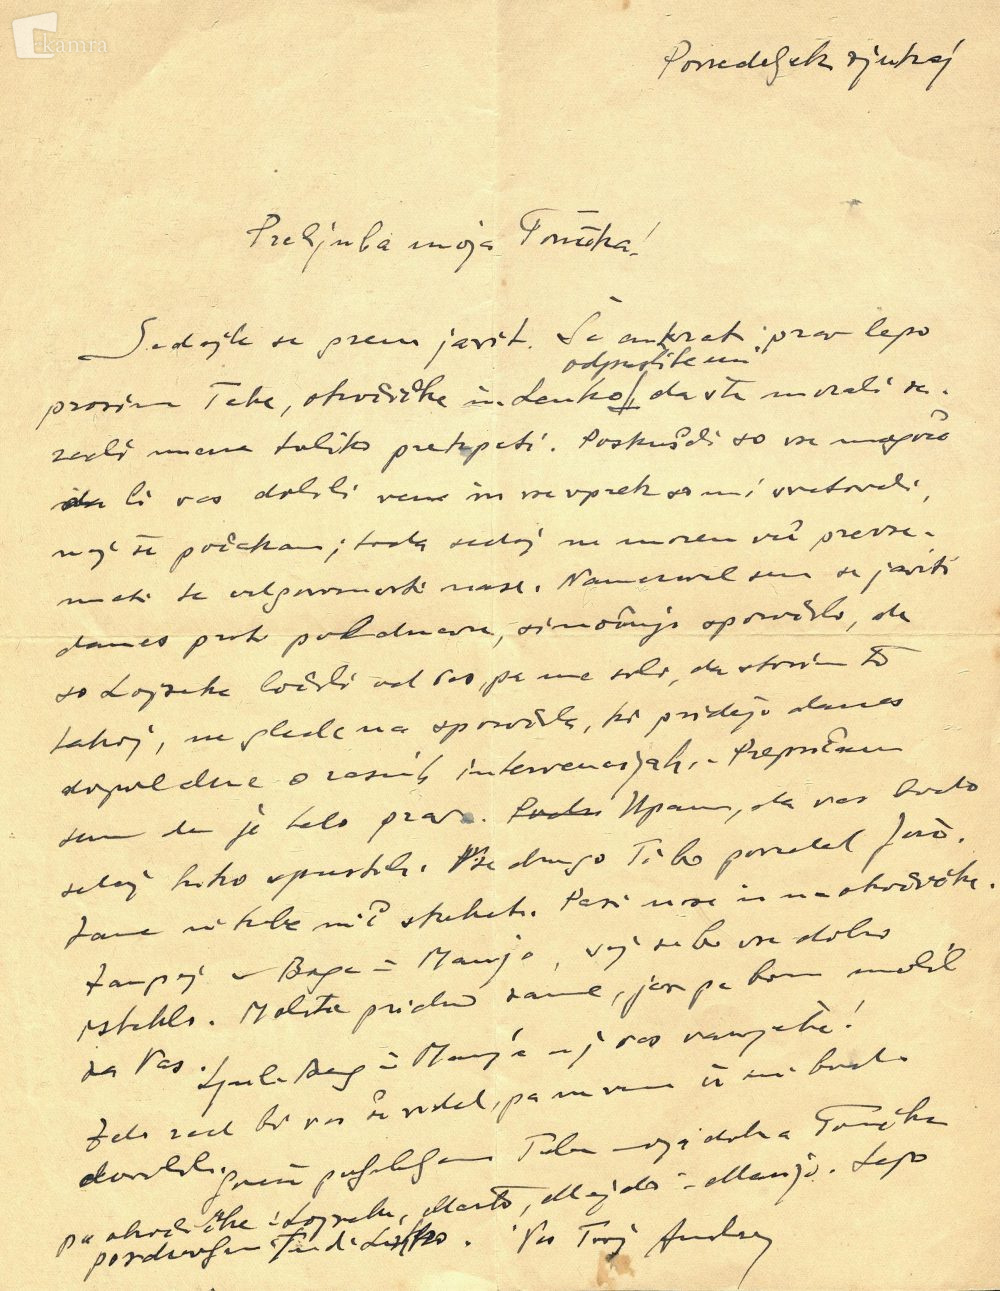 kamra
Ponedeljek zjutraj
Preljuba moja Tončka!
Sedajle se grem javit. Še enkrat prav lepo
odpustite mi
prosim Tebe, otročičke in Lenko, da ste morali ra-
zadi mene toliko pretrpeti. Poskušali so vse mogoče
da bi vas dobili ven in vsevprek so mi svetovali,
naj še počakam; toda sedaj ne morem več prevze-
mati te odgovornosti nase. Nameraval sem se javiti
danes proti poldnevu, sinočnje sporočilo, da
so Lojzeka ločili od Vas, pa me sili, da storim to
takoj, ne glede na sporočila, ki pridejo danes
dopoldne o raznih intervencijah. - Prepričan
sem da je tako prav. Upam, da vas bodo
sedaj kmalo spustili. Vse drugo Ti bo povedal Jože.
Zame ni treba nič skrbeti. Pazi nase in na otročičke.
Zaupaj v Boga in Marijo, saj se bo vse dobro
izteklo. Molite pridno zame, jaz pa bom molil
za Vas. Ljubi Bog in Marija naj vas varujeta!
Zelo rad bi vas še videl, pa ne vem če mi bodo
dovolili. Tebe moja dobra Tončka
pa otročičke: Lojzeka, Marto, Majdo in Marijo. Lepo
pozdravljam tudi Lenko. Vas Tvoj Andrej